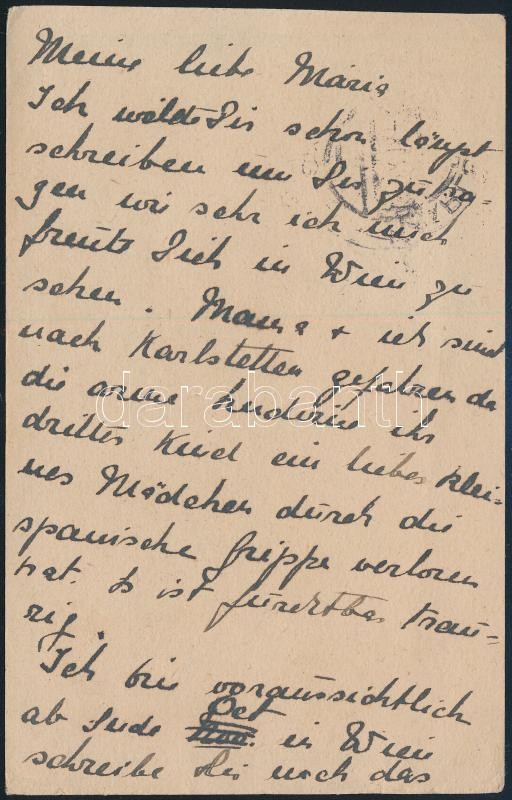 Meine liebe Maria
Ich wollte Dir schon längst
schreiben um Dir zu sa-
gen wie sehr ich mich
freute Dich in Wien zu
sehen. Mama + ich sind
nach Karlstetten gefahren da
die arme ihr
drittes Kind ein liebes klei-
nes Mädchen durch die
spanische Grippe verloren
hat. Es ist furchtbar trau-
rig.
Ich bin voraussichtlich
ab Ende Oct in Wien
schreibe Dir noch das
darabanth